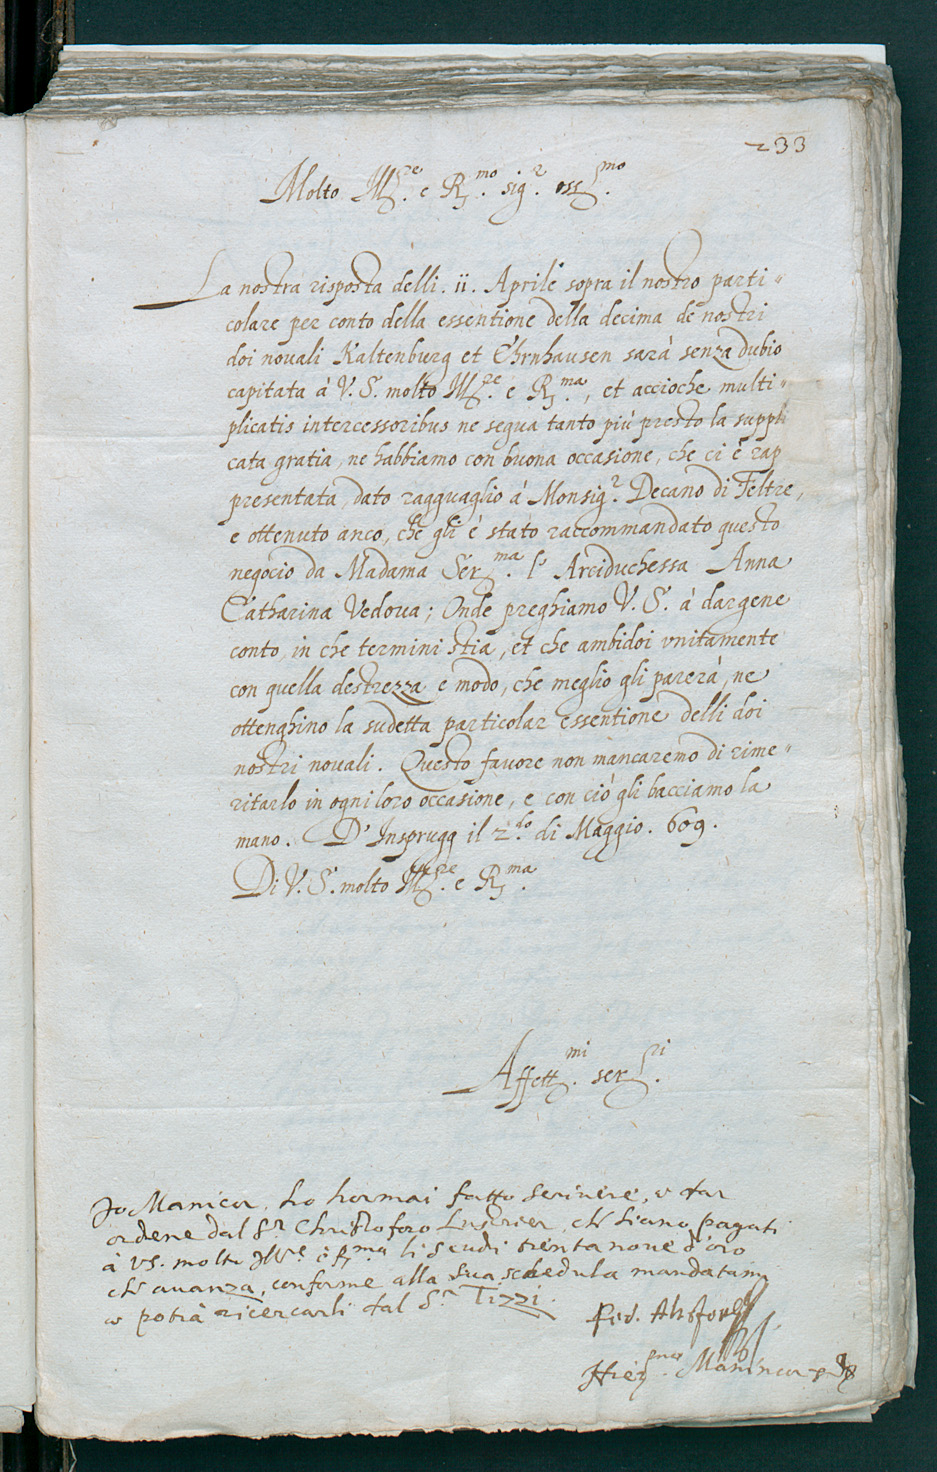 233
Molto Ill.re e R.mo sig.r oss.mo
La nostra risposta delli . ii . Aprile sopra il nostro parti=
colare per conto della essentione della decima de nostri
doi nouali Kaltenburg et Ehrnhausen sarà senza dubio
capitata à V. S. molto Ill.re e R.ma, et accioche multi=
plicatis intercessoribus ne segua tanto più presto la suppli
cata gratia, ne habbiamo con buona occasione, che ci è rap
presentata, dato ragguaglio à Monsig.r Decano di Feltre,
e ottenuto anco, che gli è stato raccommandato questo
negocio da Madama Ser.ma l' Arciduchessa Anna
Catharina Vedoua; Onde preghiamo V. S. à dargene
conto in che termini stia, et che ambidoi vnitamente
con quella destrezza e modo, che meglio gli parerà, ne
ottenghino la sudetta particolar essentione delli doi
nostri nouali . Questo fauore non mancaremo di rime=
ritarlo in ogni loro occasione, e con ciò gli bacciamo la
mano . D' Insprugg il 2.do di Maggio . 609 .
Di V. S. molto Ill.re e R.ma
Affett.mi ser.ri
Jo Manicor, ho hormai fatto scriuere, e dar
ordene dal S.r Christoforo, che siano pagati
à VS. molto Ill.re e R.ma li scudi trenta noue d'oro
che auanza, conforme alla sua schedula mandatami
e potrà ricercarli dal S.r Tizzi .
Fed. Altstetter
Hier.mo Manincor